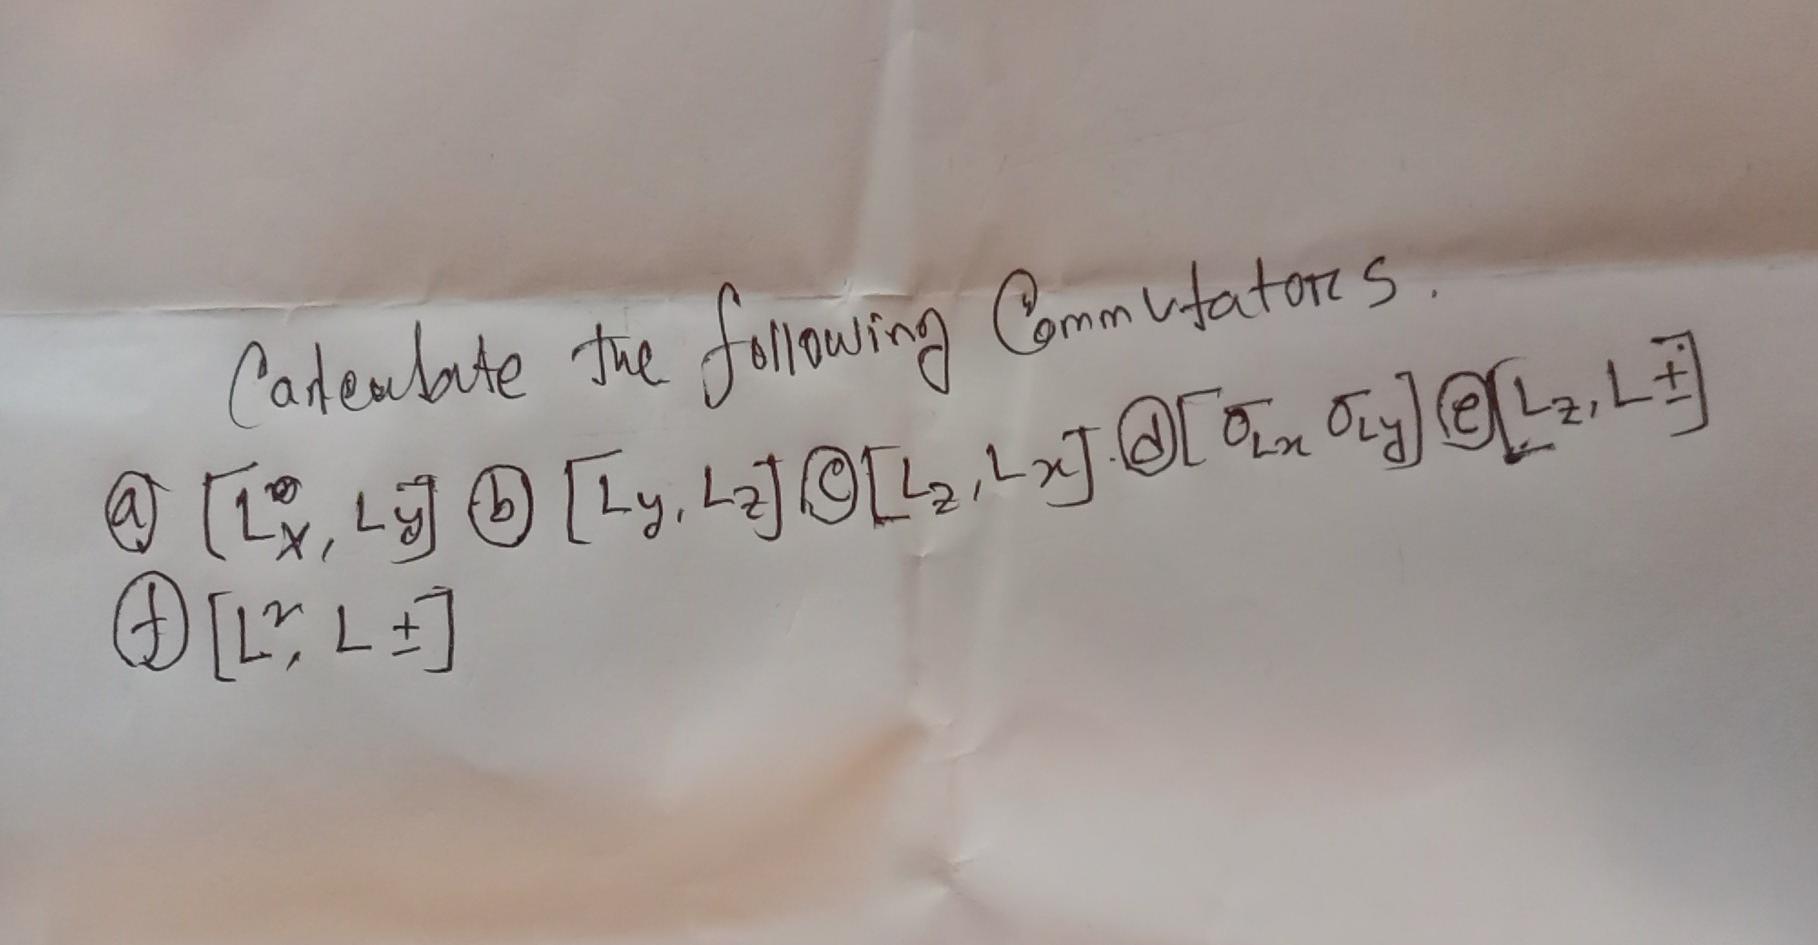 Calculate the following Commutators.
ⓐ [Lx, Ly] ⓑ [Ly, Lz] ⓒ [Lz, Lx]. ⓓ [σLx σLy] ⓔ [Lz, L±]
ⓕ [L², L±]